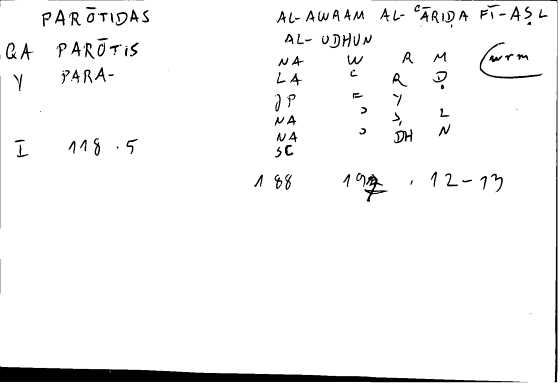 PARŌTIDAS
QA PARŌTIS
Y PARA-
I 118.5
AL-AWRAAM AL-ʿĀRIḌA FĪ-AṢL
AL-UDHUN
NA W R M (wrm
LA ʿ R Ḍ
JP F Y
NA ʾ Ṣ L
NA ʾ DH N
SC
188 . 12-13